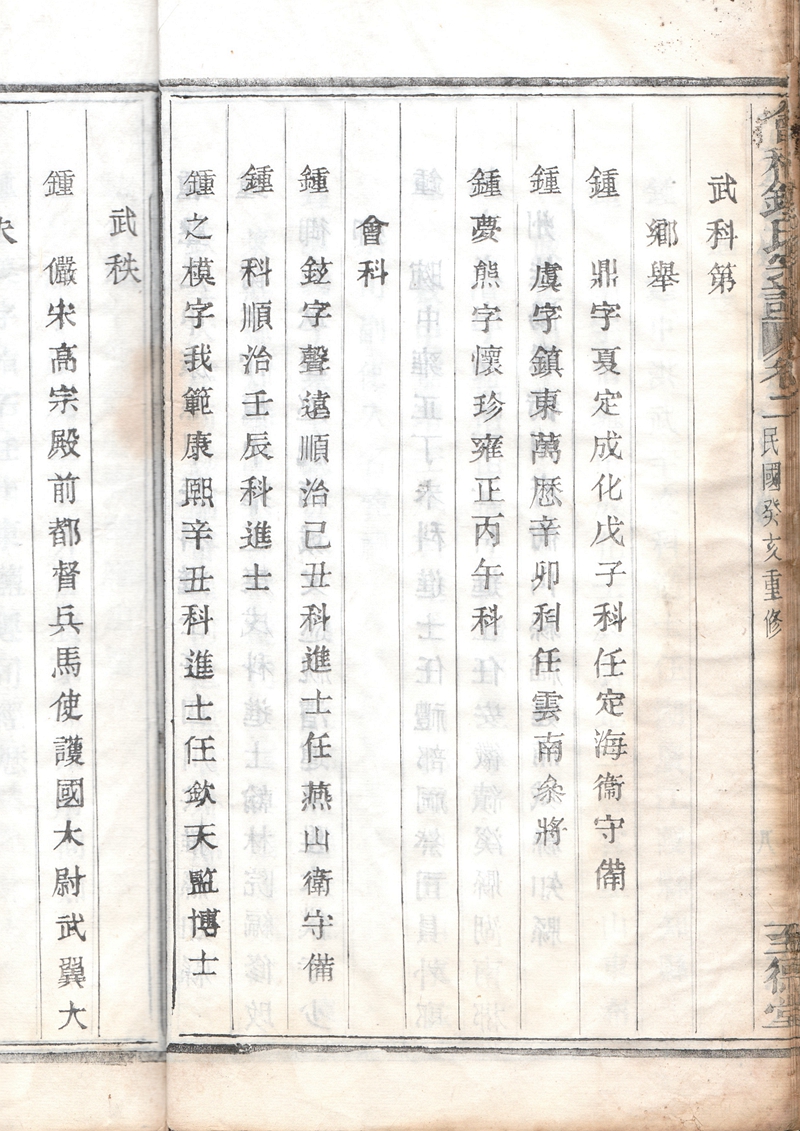 會稽鍾氏宗譜 卷二 民國癸亥重修
武科第
鄉舉
鍾 鼎字夏定成化戊子科任定海衞守備
鍾 虞字鎮東萬歷辛卯科任雲南叅將
鍾夢熊字懷珍雍正丙午科
會科
鍾 鉉字聲遠順治己丑科進士任燕山衛守備
鍾 科順治壬辰科進士
鍾之模字我範康熙辛丑科進士任欽天監博士
武秩
鍾 儼宋高宗殿前都督兵馬使護國太尉武翼大
夫